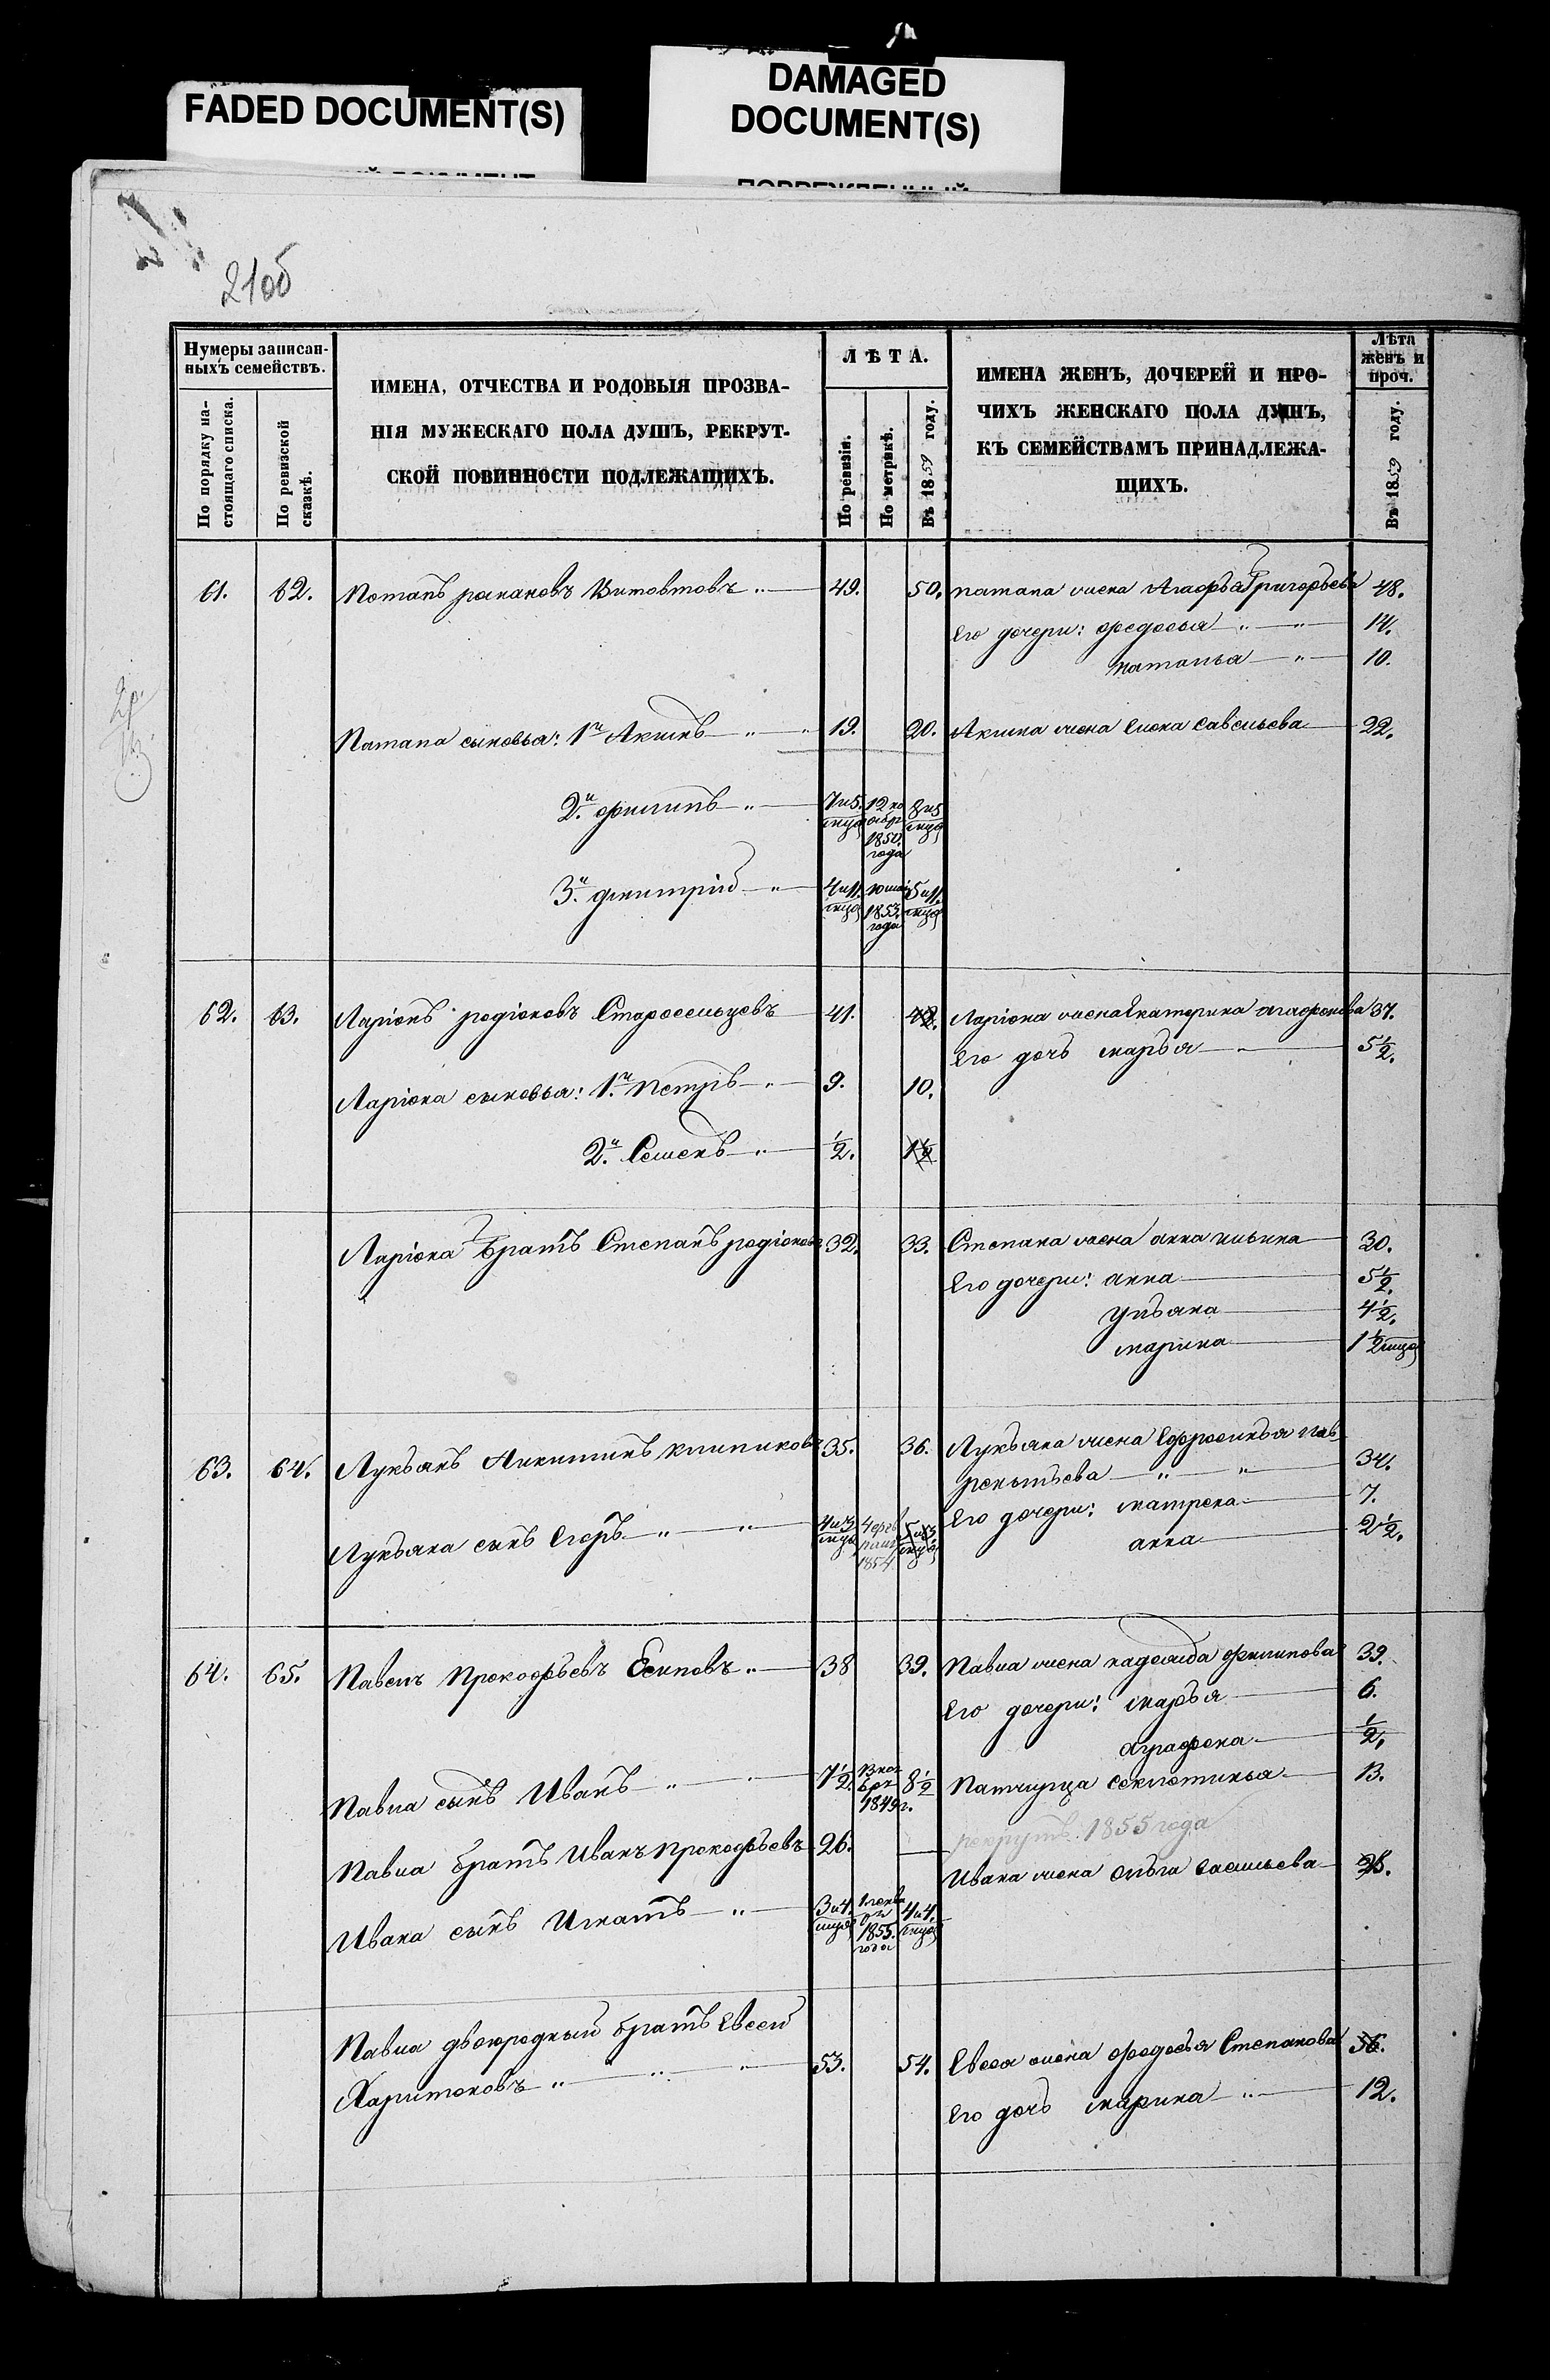 FADED DOCUMENT(S)
DAMAGED
DOCUMENT(S)
21об
Нумеры записан-
ныхъ семействъ.
По порядку на-
стоящаго списка.
По ревизской
сказкѣ.
ИМЕНА, ОТЧЕСТВА И РОДОВЫЯ ПРОЗВА-
НІЯ МУЖЕСКАГО ПОЛА ДУШЪ, РЕКРУТ-
СКОЙ ПОВИННОСТИ ПОДЛЕЖАЩИХЪ.
ЛѢТА.
По ревизіи.
По метрикѣ.
Въ 1859 году.
ИМЕНА ЖЕНЪ, ДОЧЕРЕЙ И ПРО-
ЧИХЪ ЖЕНСКАГО ПОЛА ДУШЪ,
КЪ СЕМЕЙСТВАМЪ ПРИНАДЛЕЖА-
ЩИХЪ.
Лѣта
женъ и
проч.
Въ 1859 году.
61. 62. Потапъ Витовтовъ 49. 50. потапа жена Агафья Григорьева 48.
Его дочери: федосья 14.
наталья 10.
Потапа сыновья: 1й Акимъ 19. 20. Акима жена Елена савельева 22.
2й филипъ 7и5 мцов 12 но ября 1850. года 8и5 мцов
3й дмитрій 4и11. мцов 1853. года 5и11. мцов
62. 63. Ларіонъ родіоновъ Старосельцевъ 41. 42. Ларіона жена Екатерина агафонова 37.
Его дочь марья 5½.
Ларіона сыновья: 1й Петръ 9. 10.
2й Семенъ ½. 1½
Ларіона братъ Степанъ родіоновъ 32. 33. Степана жена анна ильина 30.
Его дочери: анна 5½.
ульяна 4½.
марина 1½ мцов
63. 64. Лукьянъ Никитинъ 35. 36. Лукьяна жена Ефросинья лав-
рентьева 34.
Его дочери: матрена 7.
Лукьяна сынъ Егоръ 4и3 мцов 1854 5и3 мцов
анна 2½.
64. 65. Павелъ Прокофьевъ Есиповъ 38 39. Павла жена надежда филипова 39.
Его дочери: марья 6.
аграфена ½.
Павла сынъ Иванъ 7½. 1849г. 8½ Патчирца секлетинья 13.
рекрутъ 1855 года
Павла братъ Иванъ Прокофьевъ 26.
Ивана жена ольга васильева 28.
Ивана сынъ Игнатъ 3и4. мцов 1855. года 4и4. мцов
Павла двоюродный братъ Евсей
Харитоновъ 53. 54. Евсея жена федосья Степанова 56.
Его дочь марина 12.